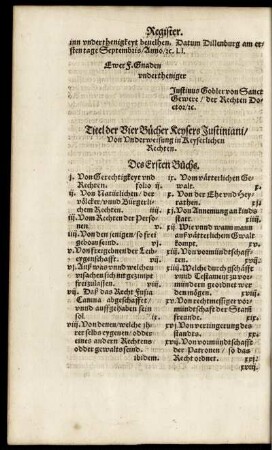 Register.
inn vnderthenigkeyt beuelhen. Datum Dillenburg am er-
sten tage Septembris/Anno/ꝛc. LI.
Ewer F. Gnaden
vndertheniger
Justinus Gobler von Sanct
Gewere/der Rechten Do-
ctor/ꝛc.
Titel der Vier Bücher Keysers Justiniani/
Von Vnderweisung in Keyserlichen
Rechten.
Des Ersten Büchs.
j. Von Gerechtigkeyt vnd
Rechten. folio ij.
ij. Von Natürlichen/der
völcker/vnnd Burgerli-
chem Rechten. iij.
iij. Vom Rechten der Perso-
nen. v.
iiij. Von den jenigen/so frei
geborn seind. vj.
v. Von freigebnen der Leib-
eygenschafft. vij.
vj. Auß was vnnd welchen
vrsachen jemand gezimpt
frei zulassen. viij.
vij. Daß das Recht Fusia
Canina abgeschaffet/
vnnd auffgehaben sein
sol. ix.
viij. Von denen/welche jh-
rer selbs eygenen/odder
eines andern Rechtens
odder gewalts seind.
ibidem.
ix. Von vätterlichen Ge-
walt. x.
x. Von der Ehe vnd Hey-
rathen. xj.
xj. Von Annemung an kinds
statt. xiij.
xij. Wie vnnd wann mann
auß vätterlichen Gwalt
kompt. xv.
xiij. Von vormündtschafften
xviij. Welche durch gschäffte
vnd Testament zu vor-
mündern geordnet wer-
den mögen. xviij.
xv. Von rechtmessiger vor-
mündtschafft der Stam̃
freundt. xix.
xvj. Von verringerung des
standts. xx.
xvij. Von vormündtschafft
der Patronen/so das
Recht ordnet. xxj.
xviij.